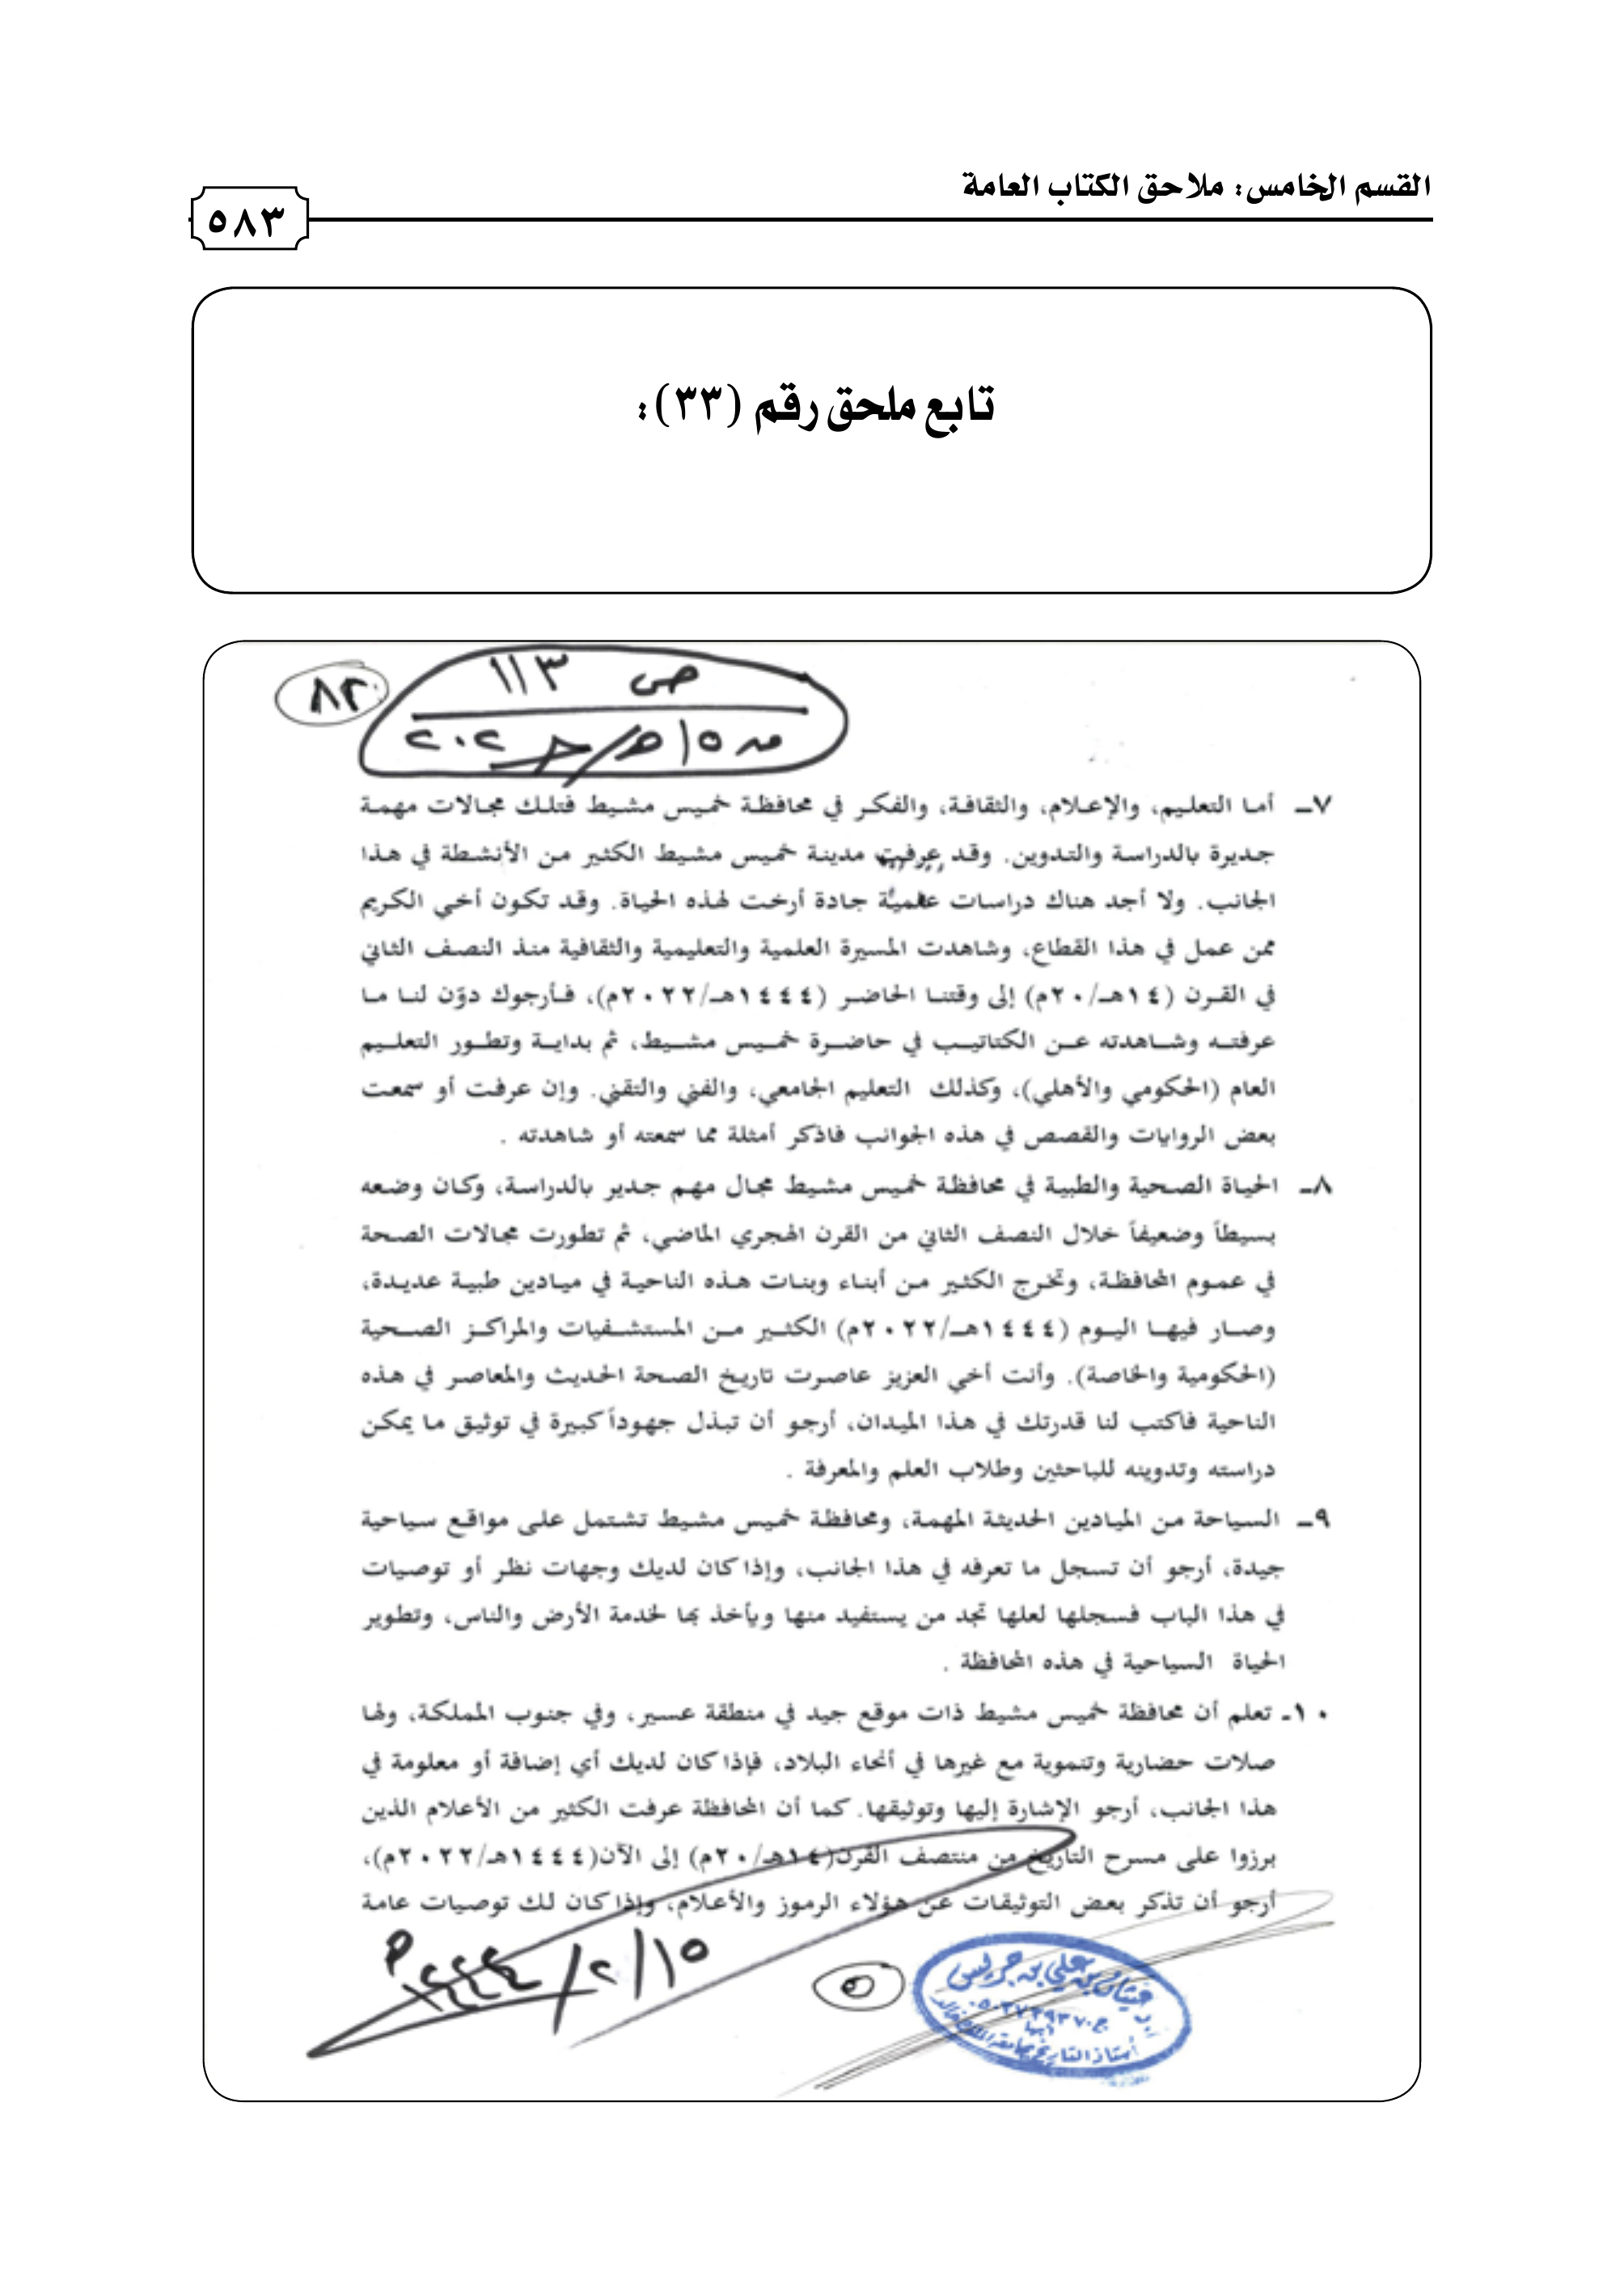 القسم الخامس: ملاحق الكتاب العامة
٥٨٣
تابع ملحق رقم (٣٣):
ص ١١٣
٨٢
٧ـ أما التعليم، والإعلام، والثقافة، والفكر في محافظة خميس مشيط فتلك مجالات مهمة
جديرة بالدراسة والتدوين. وقد عرفت مدينة خميس مشيط الكثير من الأنشطة في هذا
الجانب. ولا أجد هناك دراسات علمية جادة أرخت لهذه الحياة. وقد تكون أخي الكريم
ممن عمل في هذا القطاع، وشاهدت المسيرة العلمية والتعليمية والثقافية منذ النصف الثاني
في القرن (١٤هـ/٢٠م) إلى وقتنا الحاضر (١٤٤٤هـ/٢٠٢٢م)، فأرجوك دوّن لنا ما
عرفته وشاهدته عن الكتاتيب في حاضرة خميس مشيط، ثم بداية وتطور التعليم
العام (الحكومي والأهلي)، وكذلك التعليم الجامعي، والفني والتقني. وإن عرفت أو سمعت
بعض الروايات والقصص في هذه الجوانب فاذكر أمثلة مما سمعته أو شاهدته .
٨ـ الحياة الصحية والطبية في محافظة خميس مشيط مجال مهم جدير بالدراسة، وكان وضعه
بسيطاً وضعيفاً خلال النصف الثاني من القرن الهجري الماضي، ثم تطورت مجالات الصحة
في عموم المحافظة، وتخرج الكثير من أبناء وبنات هذه الناحية في ميادين طبية عديدة،
وصار فيها اليوم (١٤٤٤هـ/٢٠٢٢م) الكثير من المستشفيات والمراكز الصحية
(الحكومية والخاصة). وأنت أخي العزيز عاصرت تاريخ الصحة الحديث والمعاصر في هذه
الناحية فاكتب لنا قدرتك في هذا الميدان، أرجو أن تبذل جهوداً كبيرة في توثيق ما يمكن
دراسته وتدوينه للباحثين وطلاب العلم والمعرفة .
٩ـ السياحة من الميادين الحديثة المهمة، ومحافظة خميس مشيط تشتمل على مواقع سياحية
جيدة، أرجو أن تسجل ما تعرفه في هذا الجانب، وإذا كان لديك وجهات نظر أو توصيات
في هذا الباب فسجلها لعلها تجد من يستفيد منها ويأخذ بها لخدمة الأرض والناس، وتطوير
الحياة السياحية في هذه المحافظة .
١٠ـ تعلم أن محافظة خميس مشيط ذات موقع جيد في منطقة عسير، وفي جنوب المملكة، ولها
صلات حضارية وتنموية مع غيرها في أنحاء البلاد، فإذا كان لديك أي إضافة أو معلومة في
هذا الجانب، أرجو الإشارة إليها وتوثيقها. كما أن المحافظة عرفت الكثير من الأعلام الذين
برزوا على مسرح التاريخ من منتصف القرن(١٤هـ/٢٠م) إلى الآن(١٤٤٤هـ/٢٠٢٢م)،
أرجو أن تذكر بعض التوثيقات عن هؤلاء الرموز والأعلام، وإذا كان لك توصيات عامة
١٥/٢/
غيثان بن علي بن جريس
أبها
أستاذ التاريخ بجامعة الملك خالد